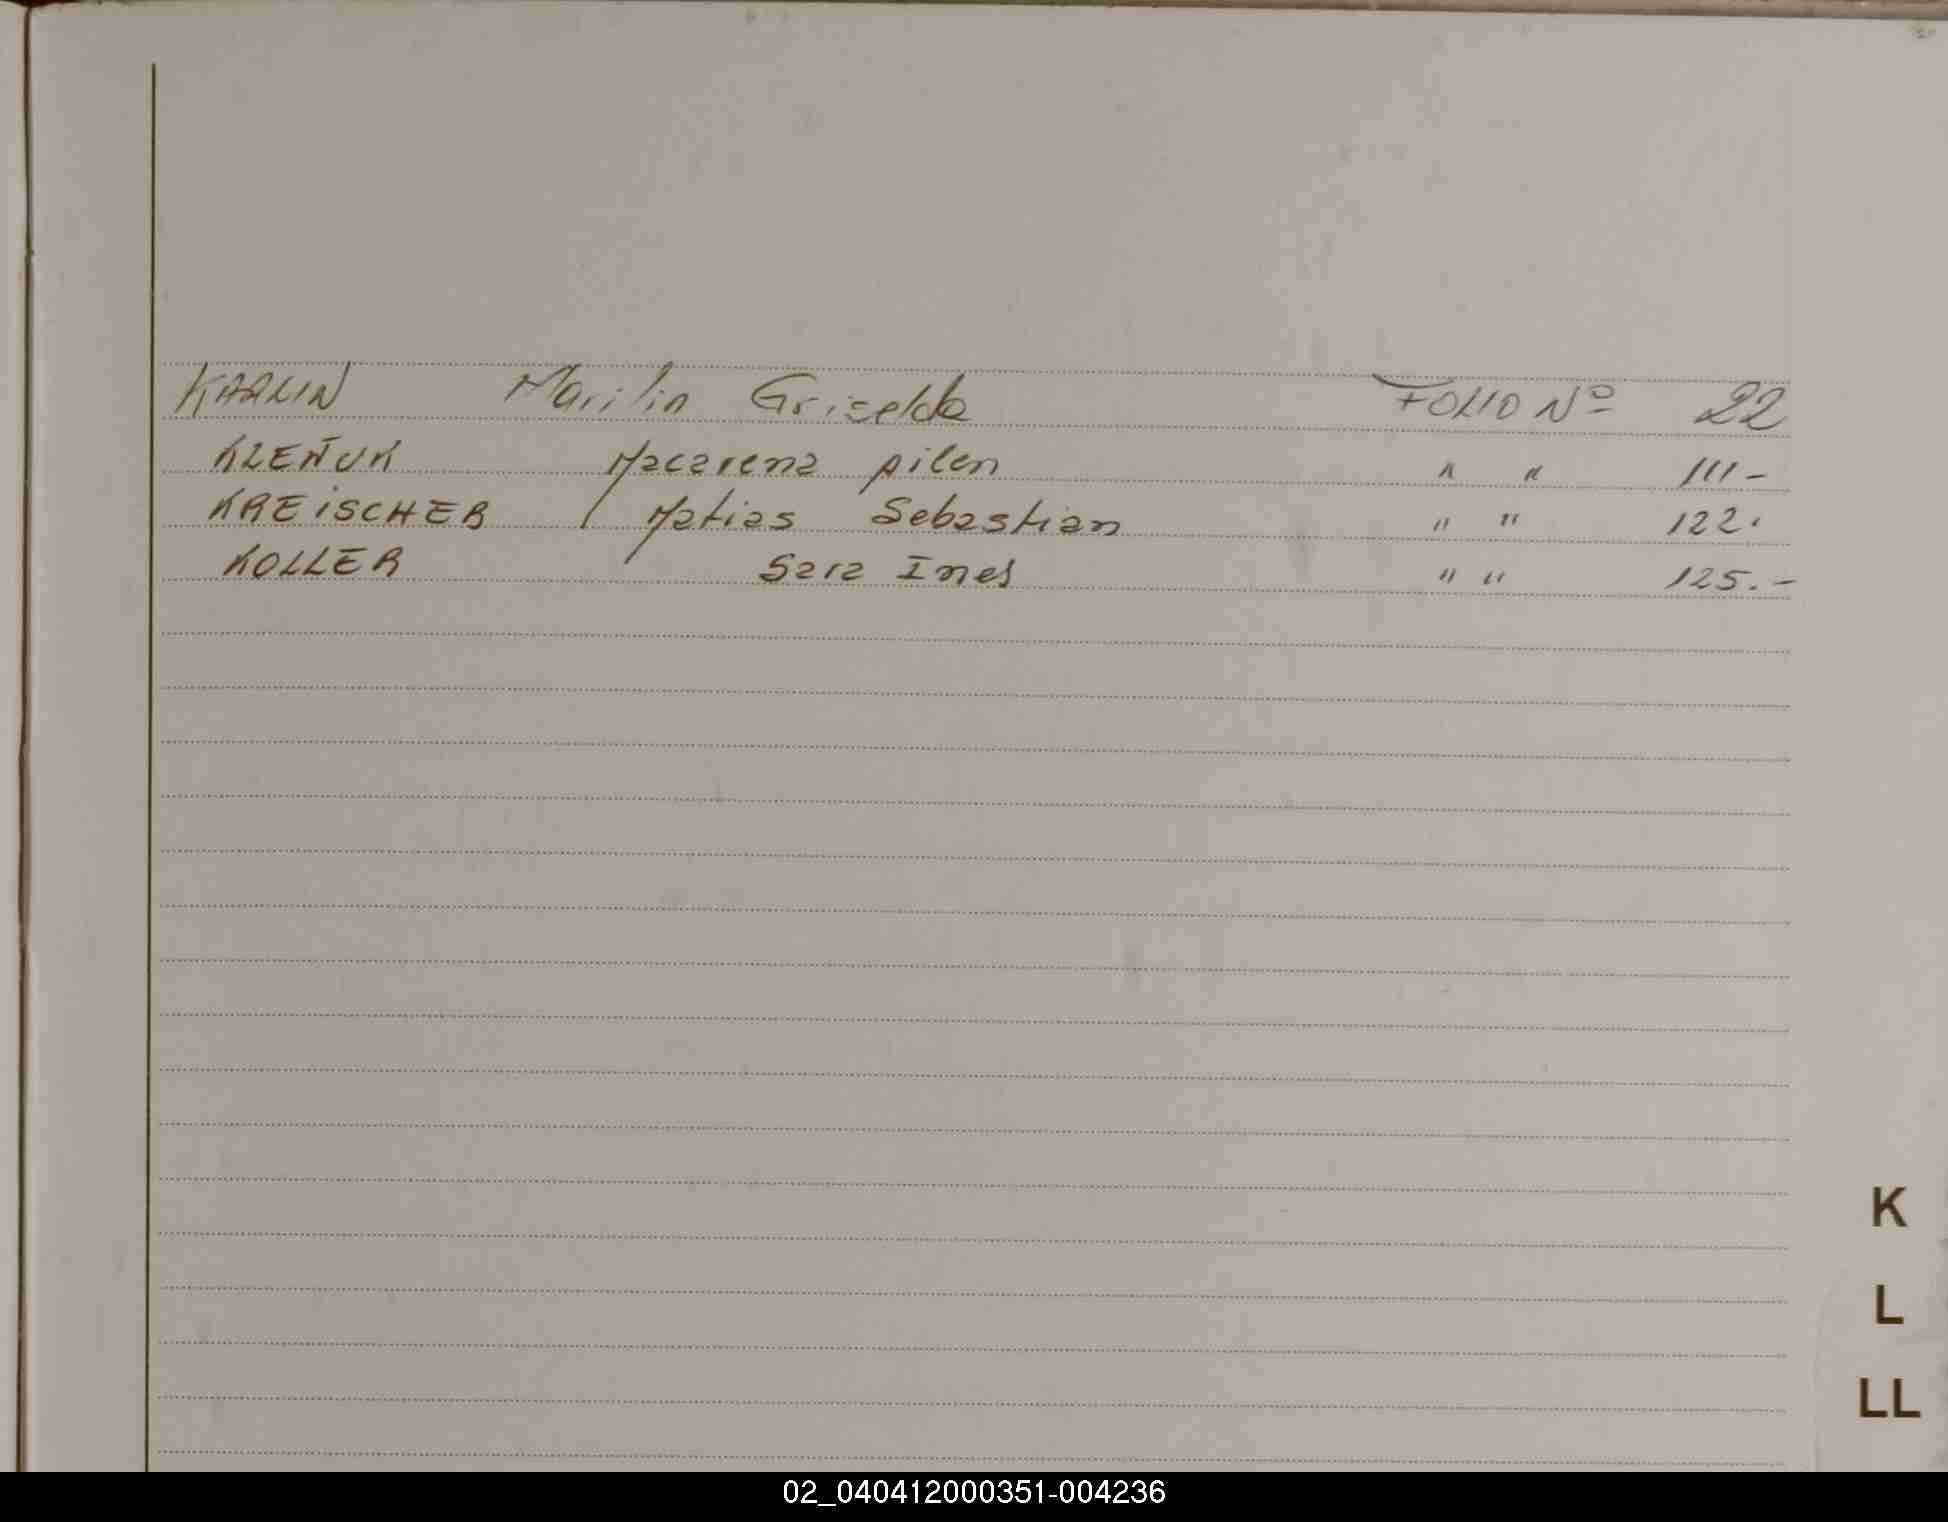 KARLIN Marilin Griselda FOLIO Nº 22
KLEÑUK Macarena pilen " " 111-
KREiSCHER Matias Sebastian " " 122.
KOLLER Sara Ines " " 125.-
K
L
LL
02_040412000351-004236